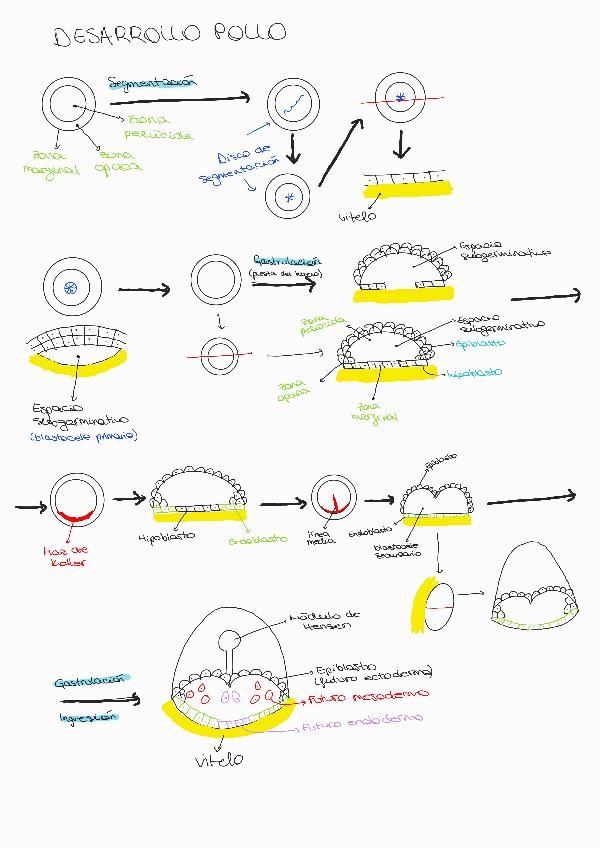 DESARROLLO POLLO
Segmentación
Zona
pelúcida
Zona
marginal
Zona
opaca
Disco de
segmentación
Vitelo
Gastrulación
(puesta del huevo)
Espacio
subgerminativo
Zona
pelúcida
Espacio
subgerminativo
Epiblasto
Hipoblasto
Zona
opaca
Zona
marginal
Espacio
subgerminativo
(blastocele primario)
Hoz de
Koller
Hipoblasto
Endoblasto
Línea
media
Epiblasto
Endoblasto
blastocele
secundario
Nódulo de
Hensen
Gastrulación
Ingresión
Epiblastro
(futuro ectodermo)
Futuro mesodermo
Futuro endodermo
Vitelo